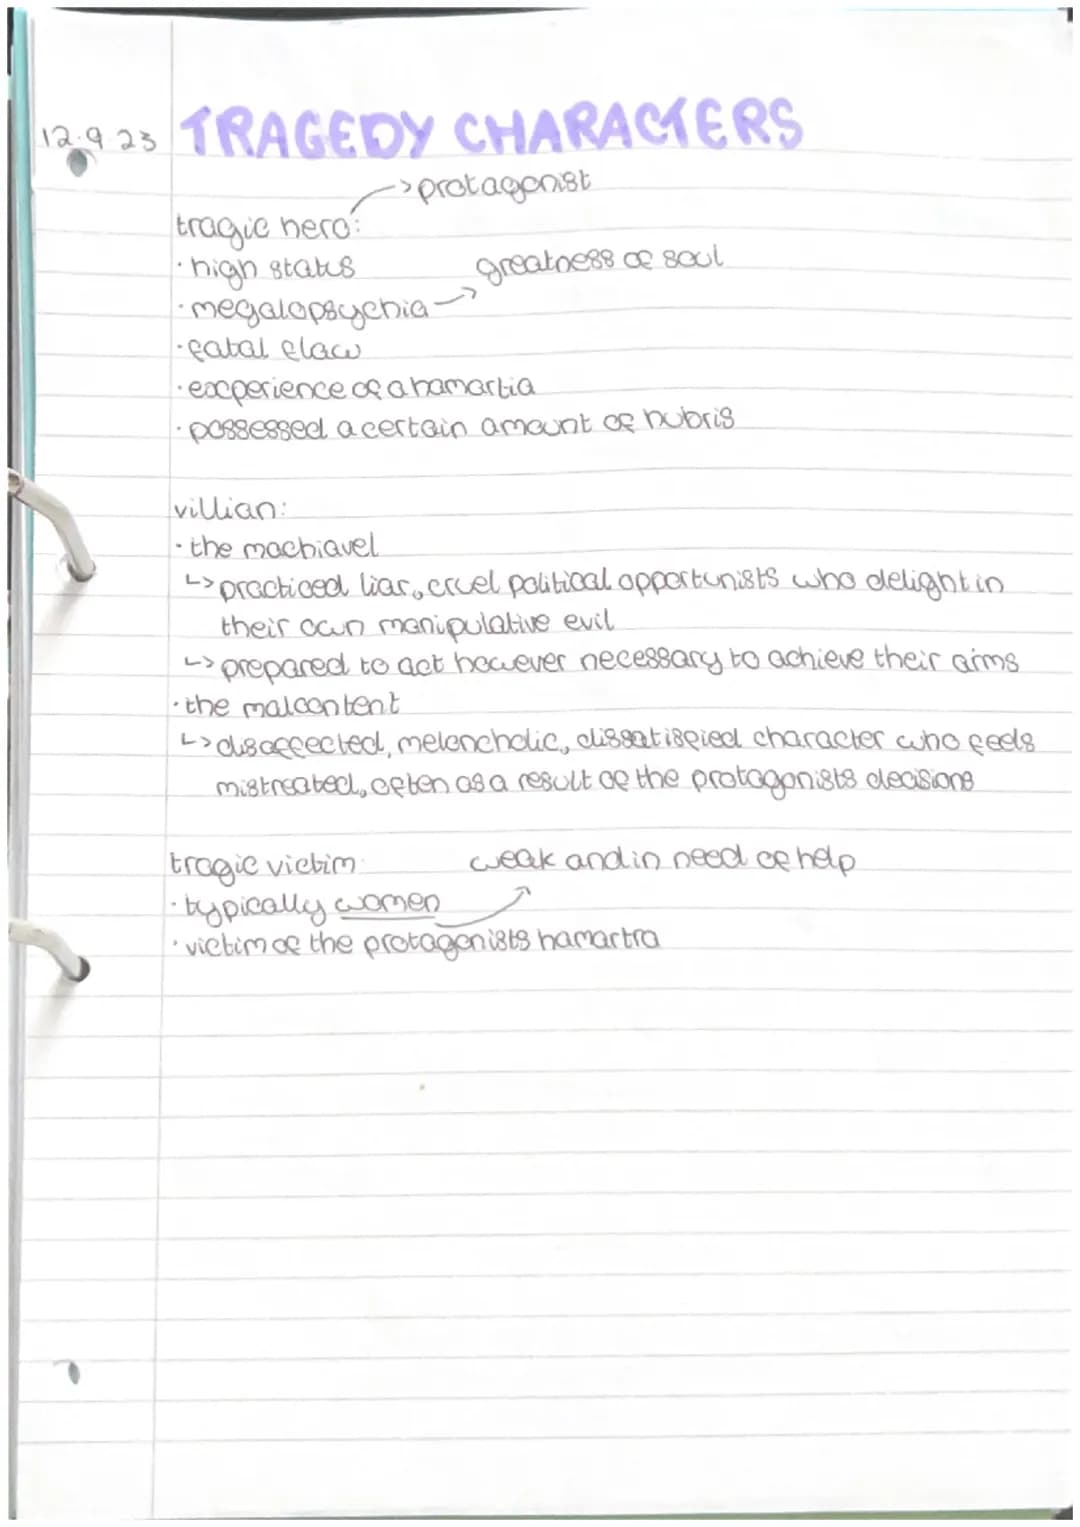 12.9.23 TRAGEDY CHARACTERS
→protagonist
tragic hero:
·high status
greatness of soul
·megalopsychia→
·fatal flaw
·experience of a hamartia
·possessed a certain amount of hubris
villian:
·the machiavel
↳practiced liar, cruel political opportunists who delight in
their own manipulative evil
↳prepared to act however necessary to achieve their aims
·the malcontent
↳disaffected, melencholic, dissatisfied character who feels
mistreated, often as a result of the protagonists decisions
tragic victim:
weak and in need of help
·typically women
·victim of the protagonists hamartra